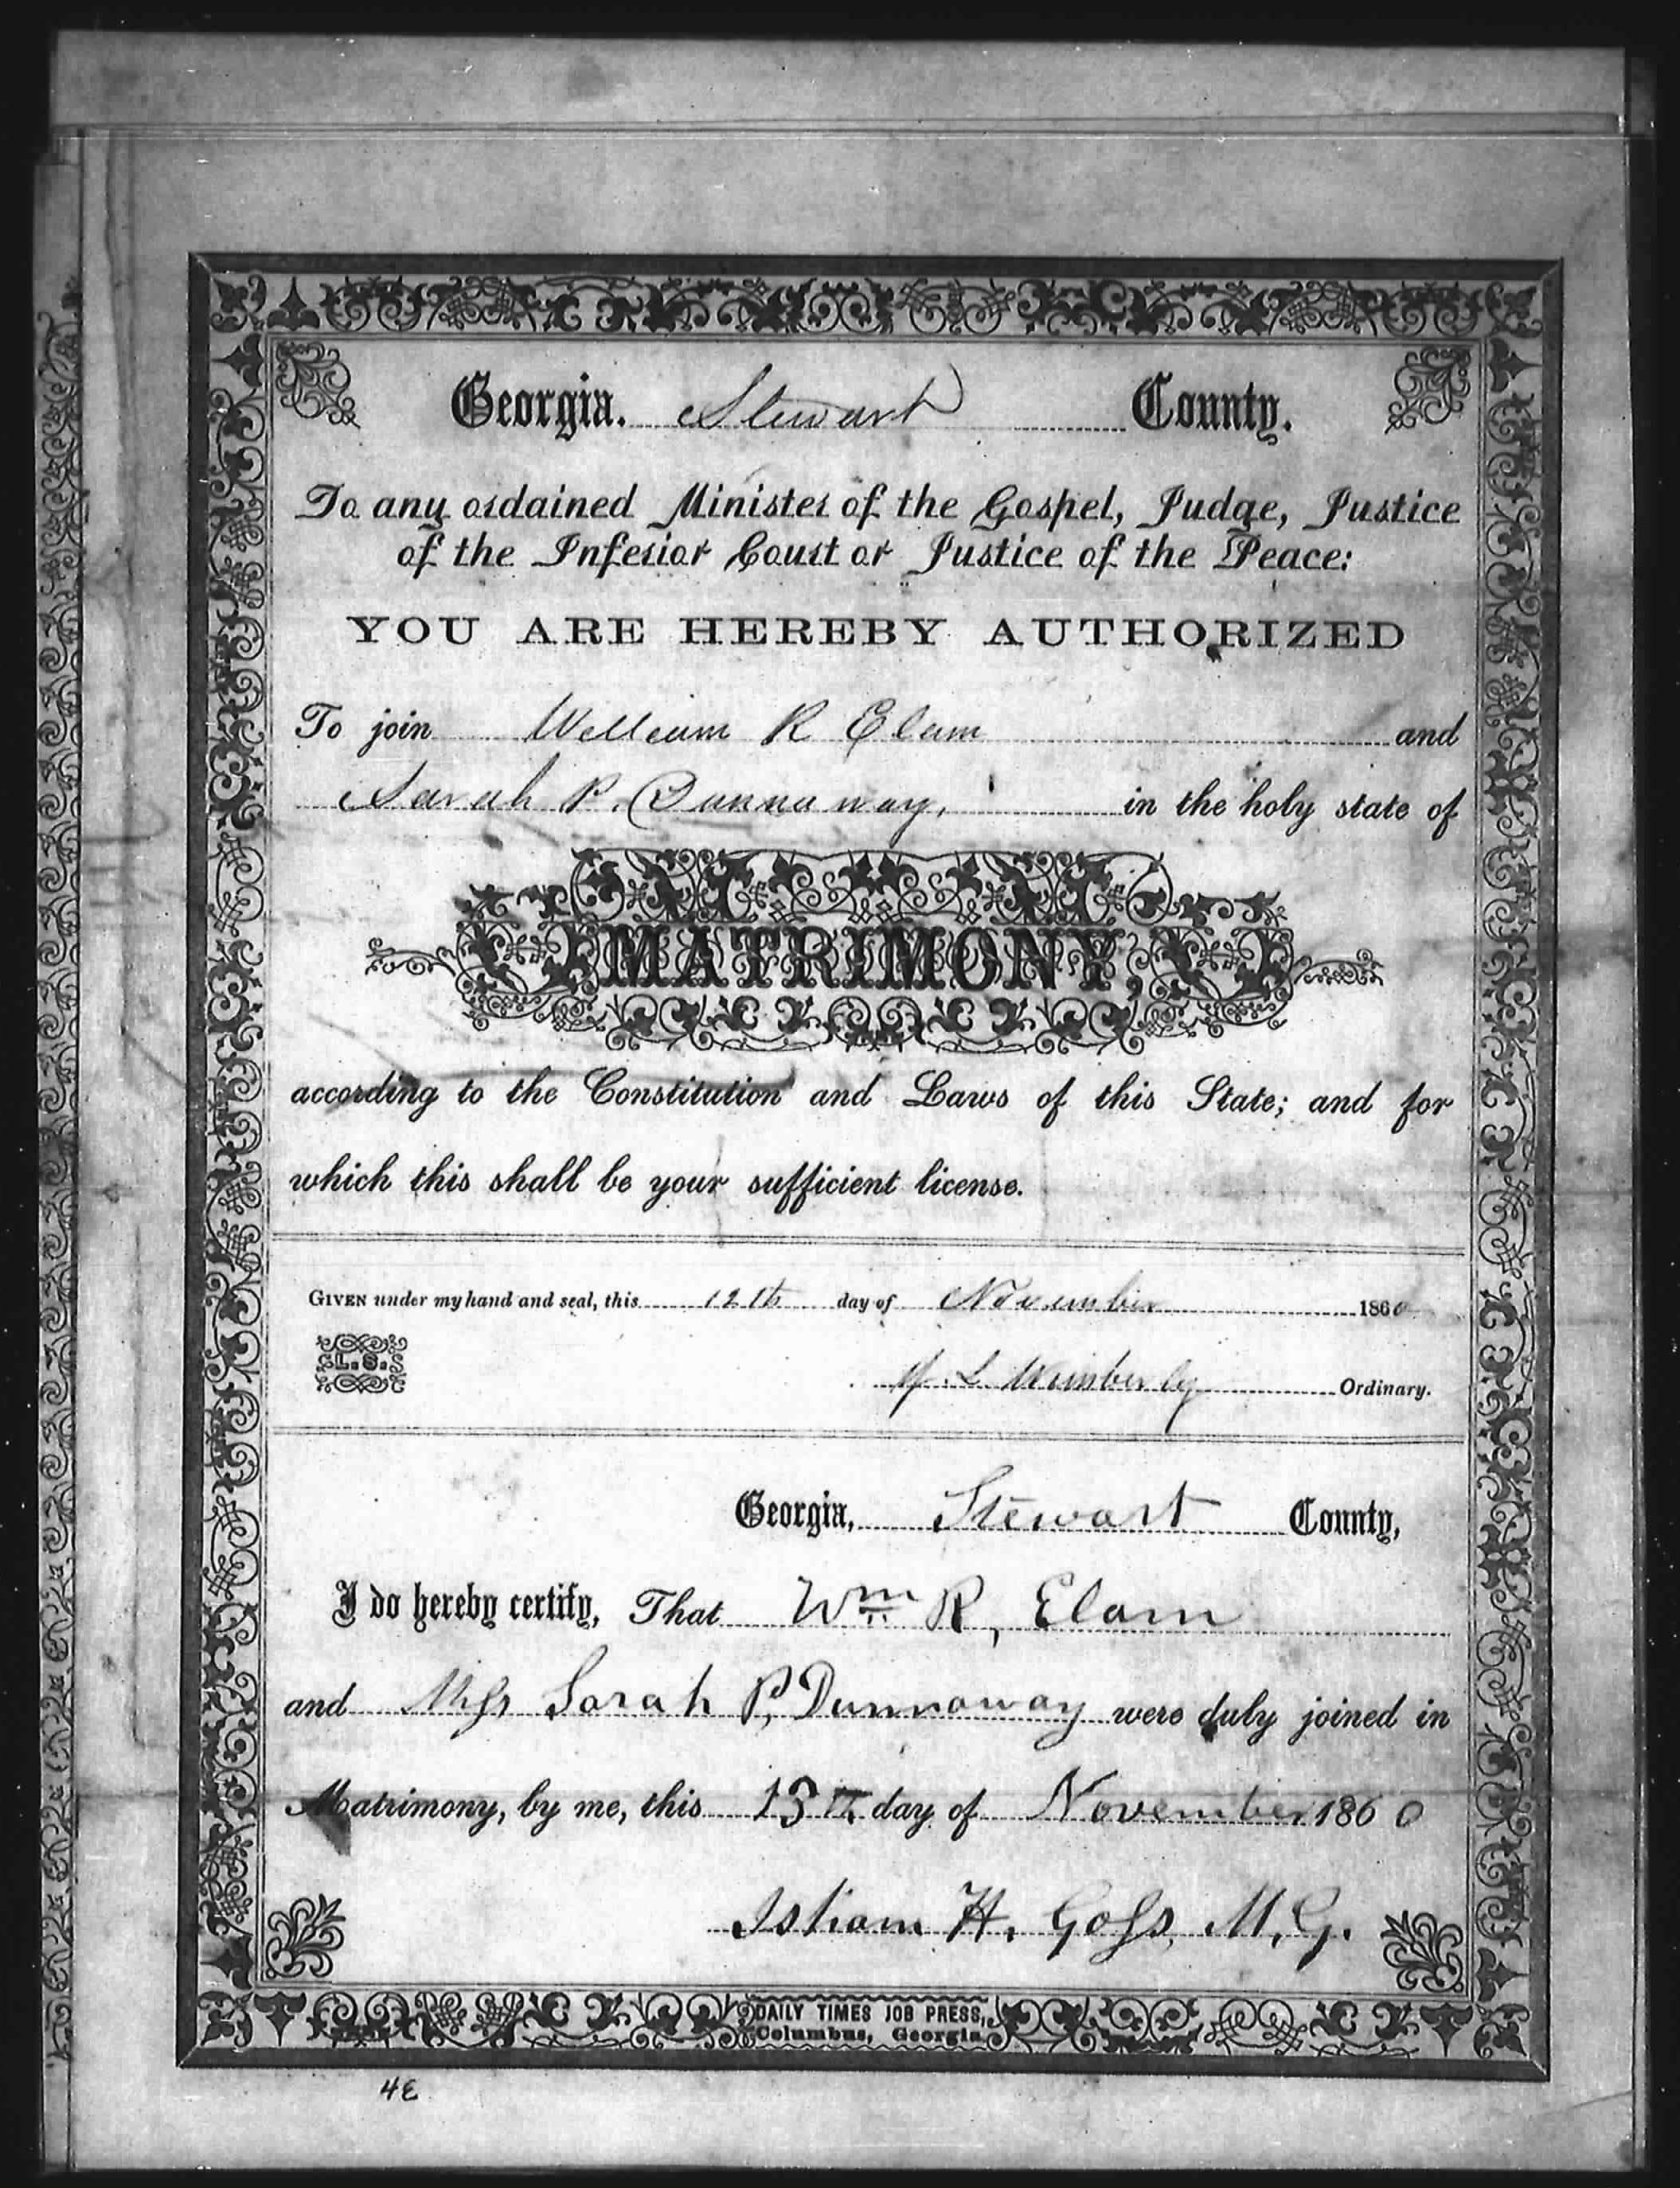 Georgia. Stewart County.
To any ordained Minister of the Gospel, Judge, Justice
of the Inferior Court or Justice of the Peace:
YOU ARE HEREBY AUTHORIZED
To join William R Elam and
Sarah P. Dunnaway, in the holy state of
MATRIMONY,
according to the Constitution and Laws of this State; and for
which this shall be your sufficient license.
GIVEN under my hand and seal, this 12th day of November 1860
L. S.
L Wimberly Ordinary.
Georgia, Stewart County,
I do hereby certify, That Wm R, Elam
and Miss Sarah P, Dunnaway were duly joined in
Matrimony, by me, this 13th day of November 1860
Isham H. Goss, M, G.
DAILY TIMES JOB PRESS,
Columbus, Georgia.
4E